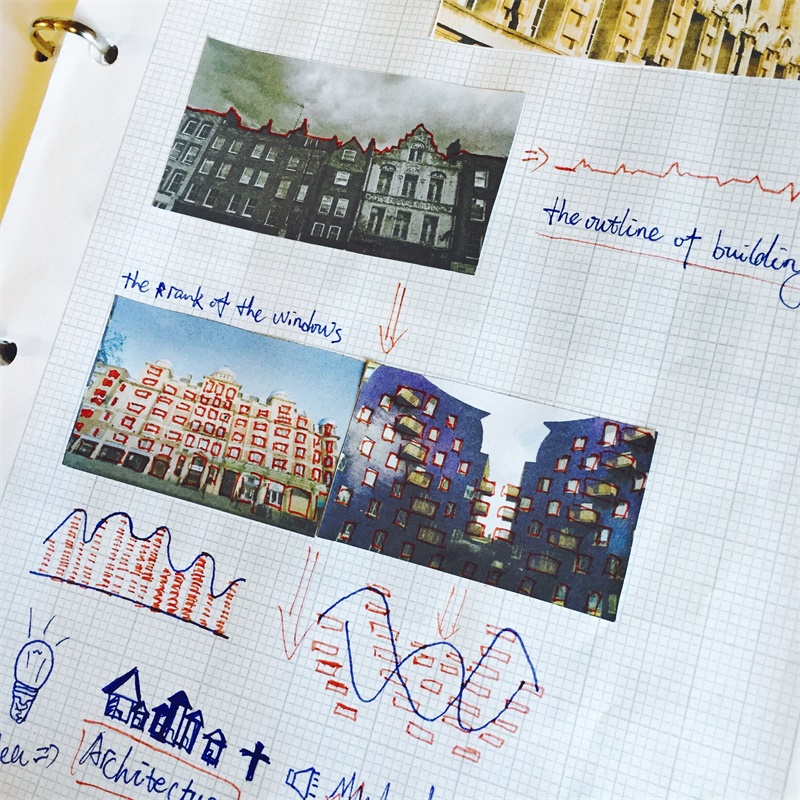 => the outline of building
the rank of the windows
=> Architectu
+